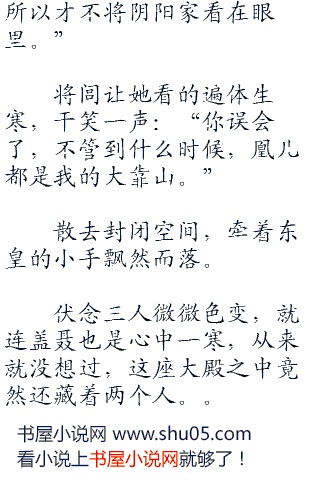 所以才不将阴阳家看在眼
里。”
将闾让她看的遍体生
寒，干笑一声：“你误会
了，不管到什么时候，凰儿
都是我的大靠山。”
散去封闭空间，牵着东
皇的小手飘然而落。
伏念三人微微色变，就
连盖聂也是心中一寒，从来
就没想过，这座大殿之中竟
然还藏着两个人。。
书屋小说网 www.shu05.com
看小说上书屋小说网就够了！